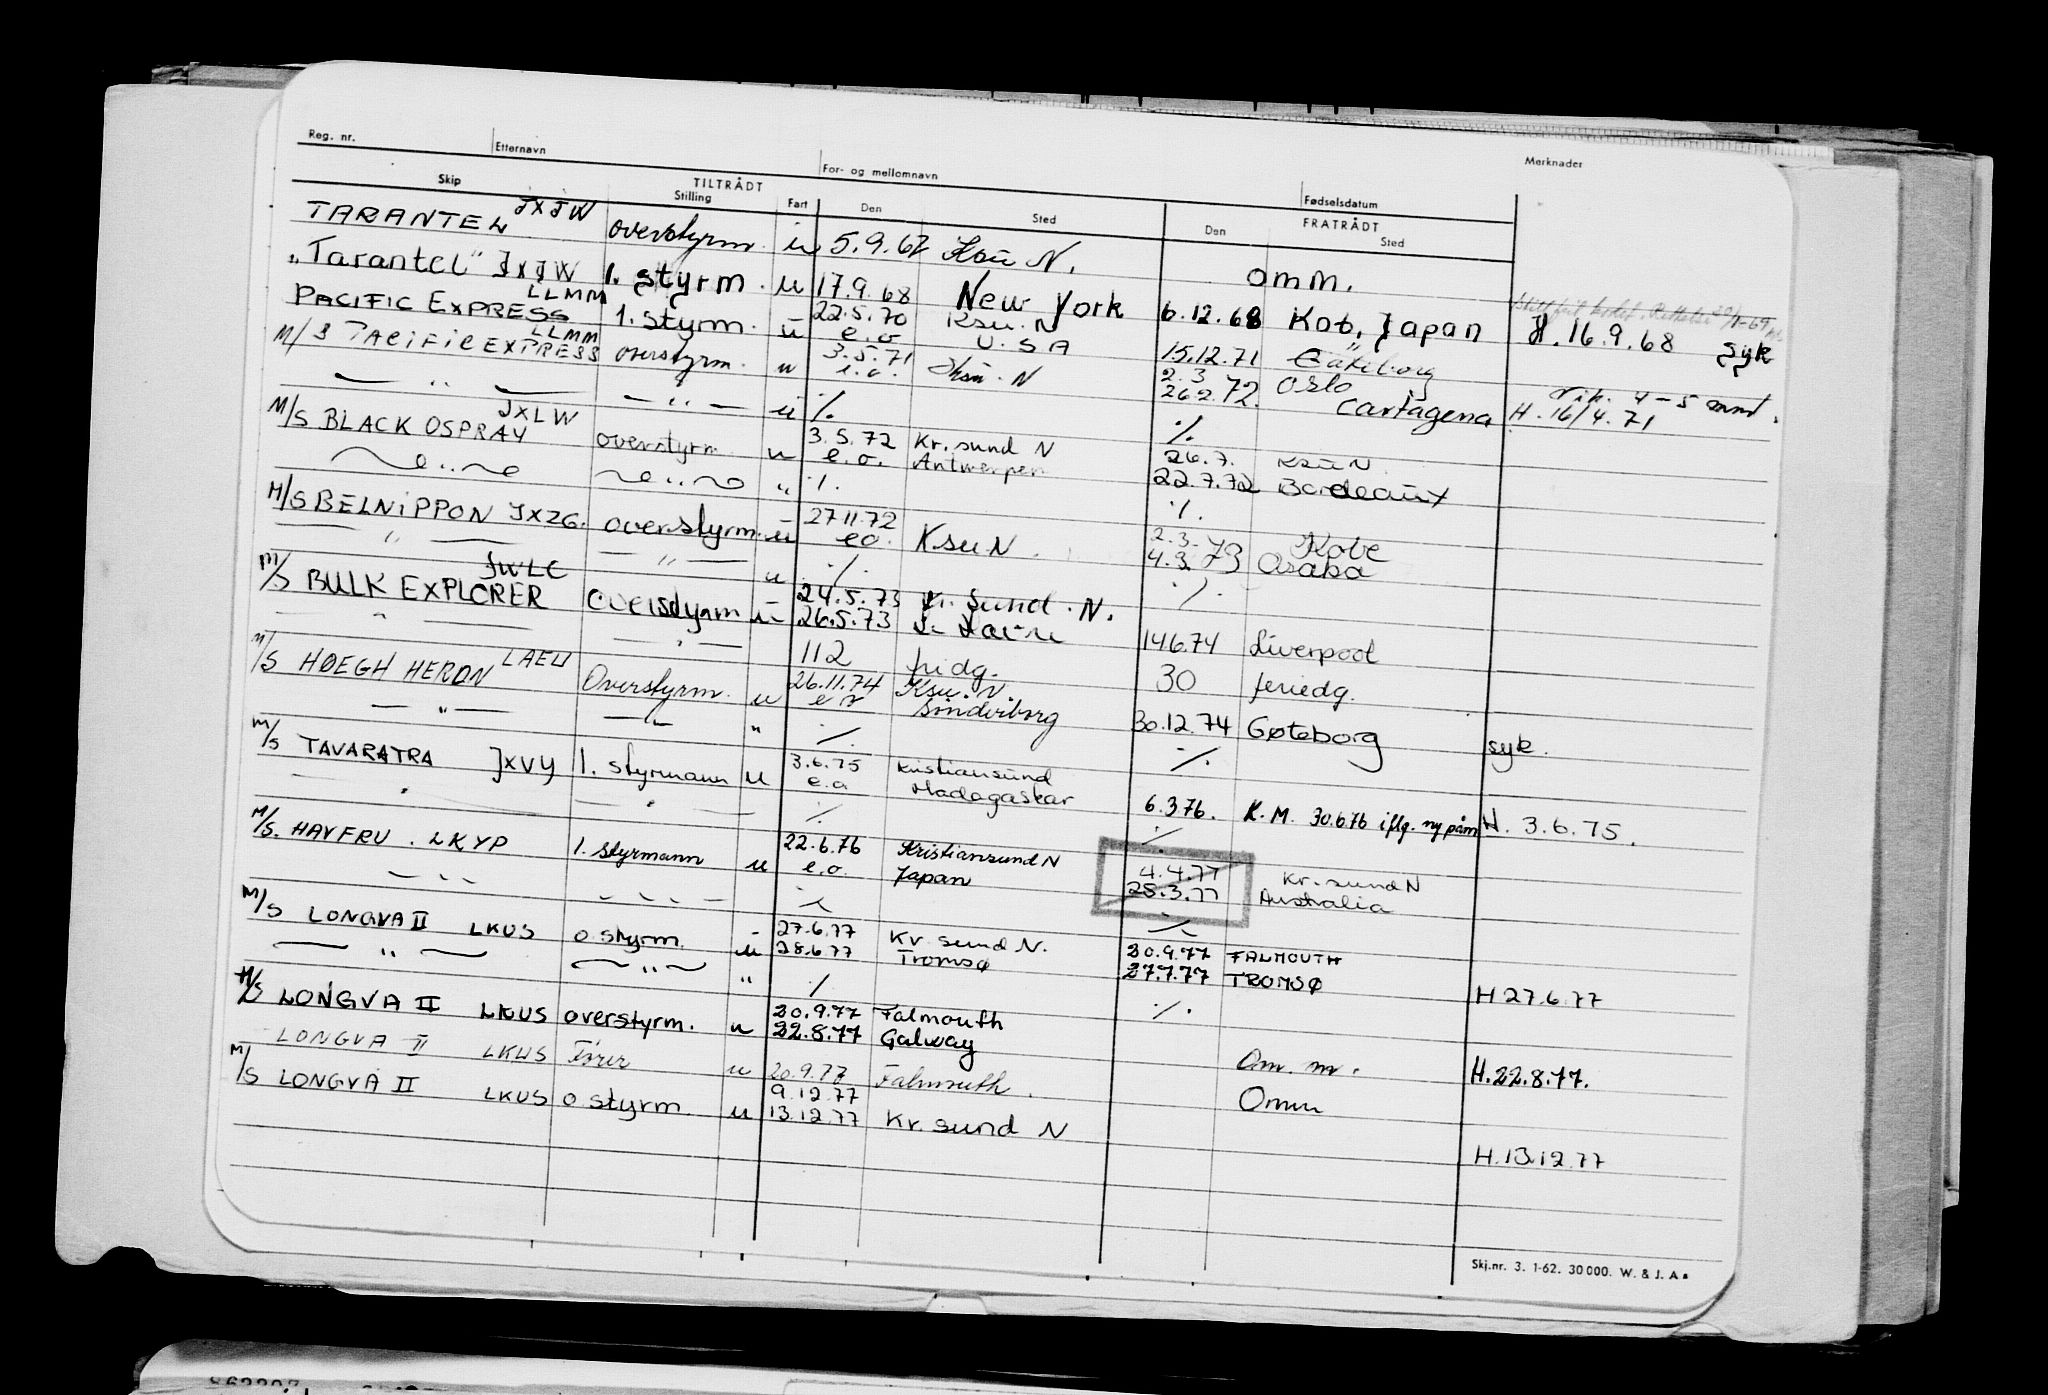 Reg. nr. Etternavn For- og mellomnavn Fødselsdatum Merknader
Skip TILTRÅDT FRATRÅDT
Stilling Fart Den Sted Den Sted
TARANTEL JXJW overstyrm. u 5.9.67 Ksu N. omm.
"Tarantel" JXJW 1. styrm. u 17.9.68 New York 6.12.68 Kobe, Japan H. 16.9.68 syk
PACIFIC EXPRESS LLMM 1. styrm. u 22.5.70 Ksu. N
e.o U.S.A
M/S PACIFIC EXPRESS LLMM overstyrm. u 3.5.71 Ksu. N 15.12.71 Göteborg
e.o. 2.3 72 Oslo 4-5 mnd.
— " — — " — u % 26.2.72. Cartagena H. 16/4.71
M/S BLACK OSPRAY JXLW overstyrm. u 3.5.72 Kr.sund N %
e.o. Antwerpen 26.7. Ksu N.
— " — — " — " %. 22.7.72 Bordeaux
M/S BELNIPPON JXZG. overstyrm. u 27.11.72 Ksu N. %.
e.o. 2.3. 73 Kobe
— " — — " — u % 4.3. 73 Osaka
M/S BULK EXPLORER JWLC overstyrm u 24.5.73 Kr. Sund. N. %
26.5.73
— " — — " — 112 fridg. 14.6.74 Liverpool
M/S HØEGH HERON LAEW Overstyrm. u 26.11.74 Ksu. N. 30 feriedg.
— " — — " — " %. 30.12.74 Gøteborg syk.
M/S TAVARATRA JXVY 1. styrmann u 3.6.75 Kristiansund %.
e.o Madagaskar
— " — — " — % 6.3.76. K.M. 30.6.76 iflg. ny påm H. 3.6.75.
M/S. HAVFRU. LKYP 1. styrmann u 22.6.76 Kristiansund N %
e.o. Japan 4.4.77 Kr.sund N
— " — — " — % 28.3.77 Australia
M/S LONGVA II LKUS o.styrm. u 27.6.77 Kr.sund N. %
28.6.77 Tromsø 20.9.77 FALMOUTH
— " — — " — " % 27.7.77 TROMSØ H 27.6.77
M/S LONGVA II LKUS overstyrm. u 20.9.77 Falmouth %.
22.8.77 Galway
LONGVA II LKUS Fører u 20.9.77 Falmouth. Om. m. H. 22.8.77.
M/S LONGVA II LKUS o.styrm. u 9.12.77 Omm
13.12.77 Kr. sund N
H. 13.12.77
Skj.nr. 3. 1-62. 30000. W. & J. A